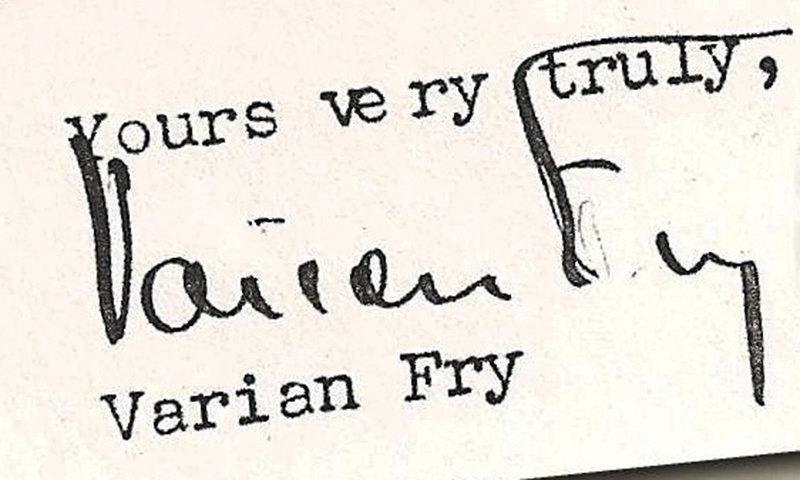 Yours very truly,
Varian Fry
Varian Fry